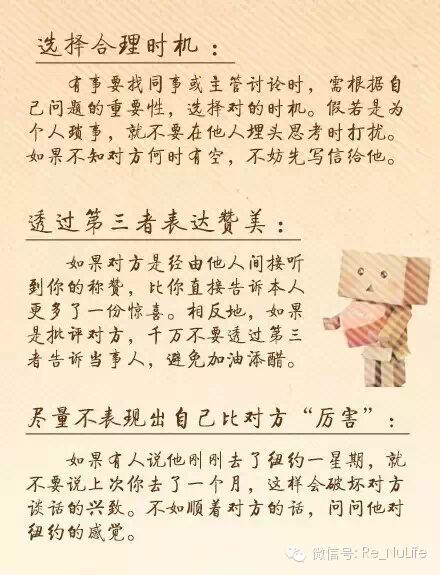 选择合理时机：
有事要找同事或主管讨论时，需根据自
己问题的重要性，选择对的时机。假若是为
个人琐事，就不要在他人埋头思考时打扰。
如果不知对方何时有空，不妨先写信给他。
透过第三者表达赞美：
如果对方是经由他人间接听
到你的称赞，比你直接告诉本人
更多了一份惊喜。相反地，如果
是批评对方，千万不要透过第三
者告诉当事人，避免加油添醋。
尽量不表现出自己比对方“厉害”：
如果有人说他刚刚去了纽约一星期，就
不要说上次你去了一个月，这样会破坏对方
谈话的兴致。不如顺着对方的话，问问他对
纽约的感觉。
微信号: Re_NuLife